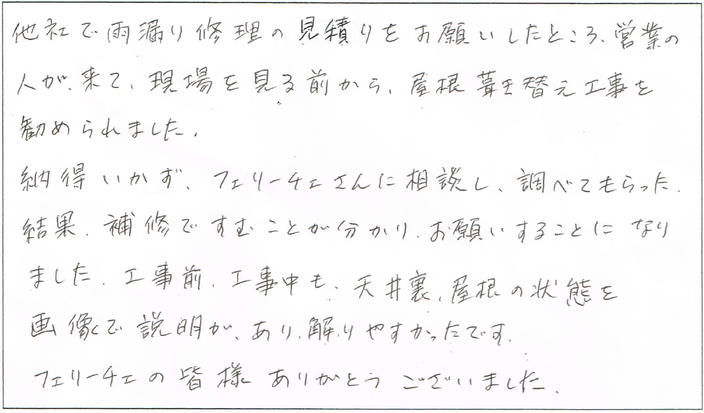 他社で雨漏り修理の見積りをお願いしたところ、営業の
人が、来て、現場を見る前から、屋根葺き替え工事を
勧められました。
納得いかず、フェリーチェさんに相談し、調べてもらった。
結果、補修ですむことが分かり、お願いすることになり
ました。工事前、工事中も、天井裏、屋根の状態を
画像で説明が、あり、解りやすかったです。
フェリーチェの皆様ありがとうございました。